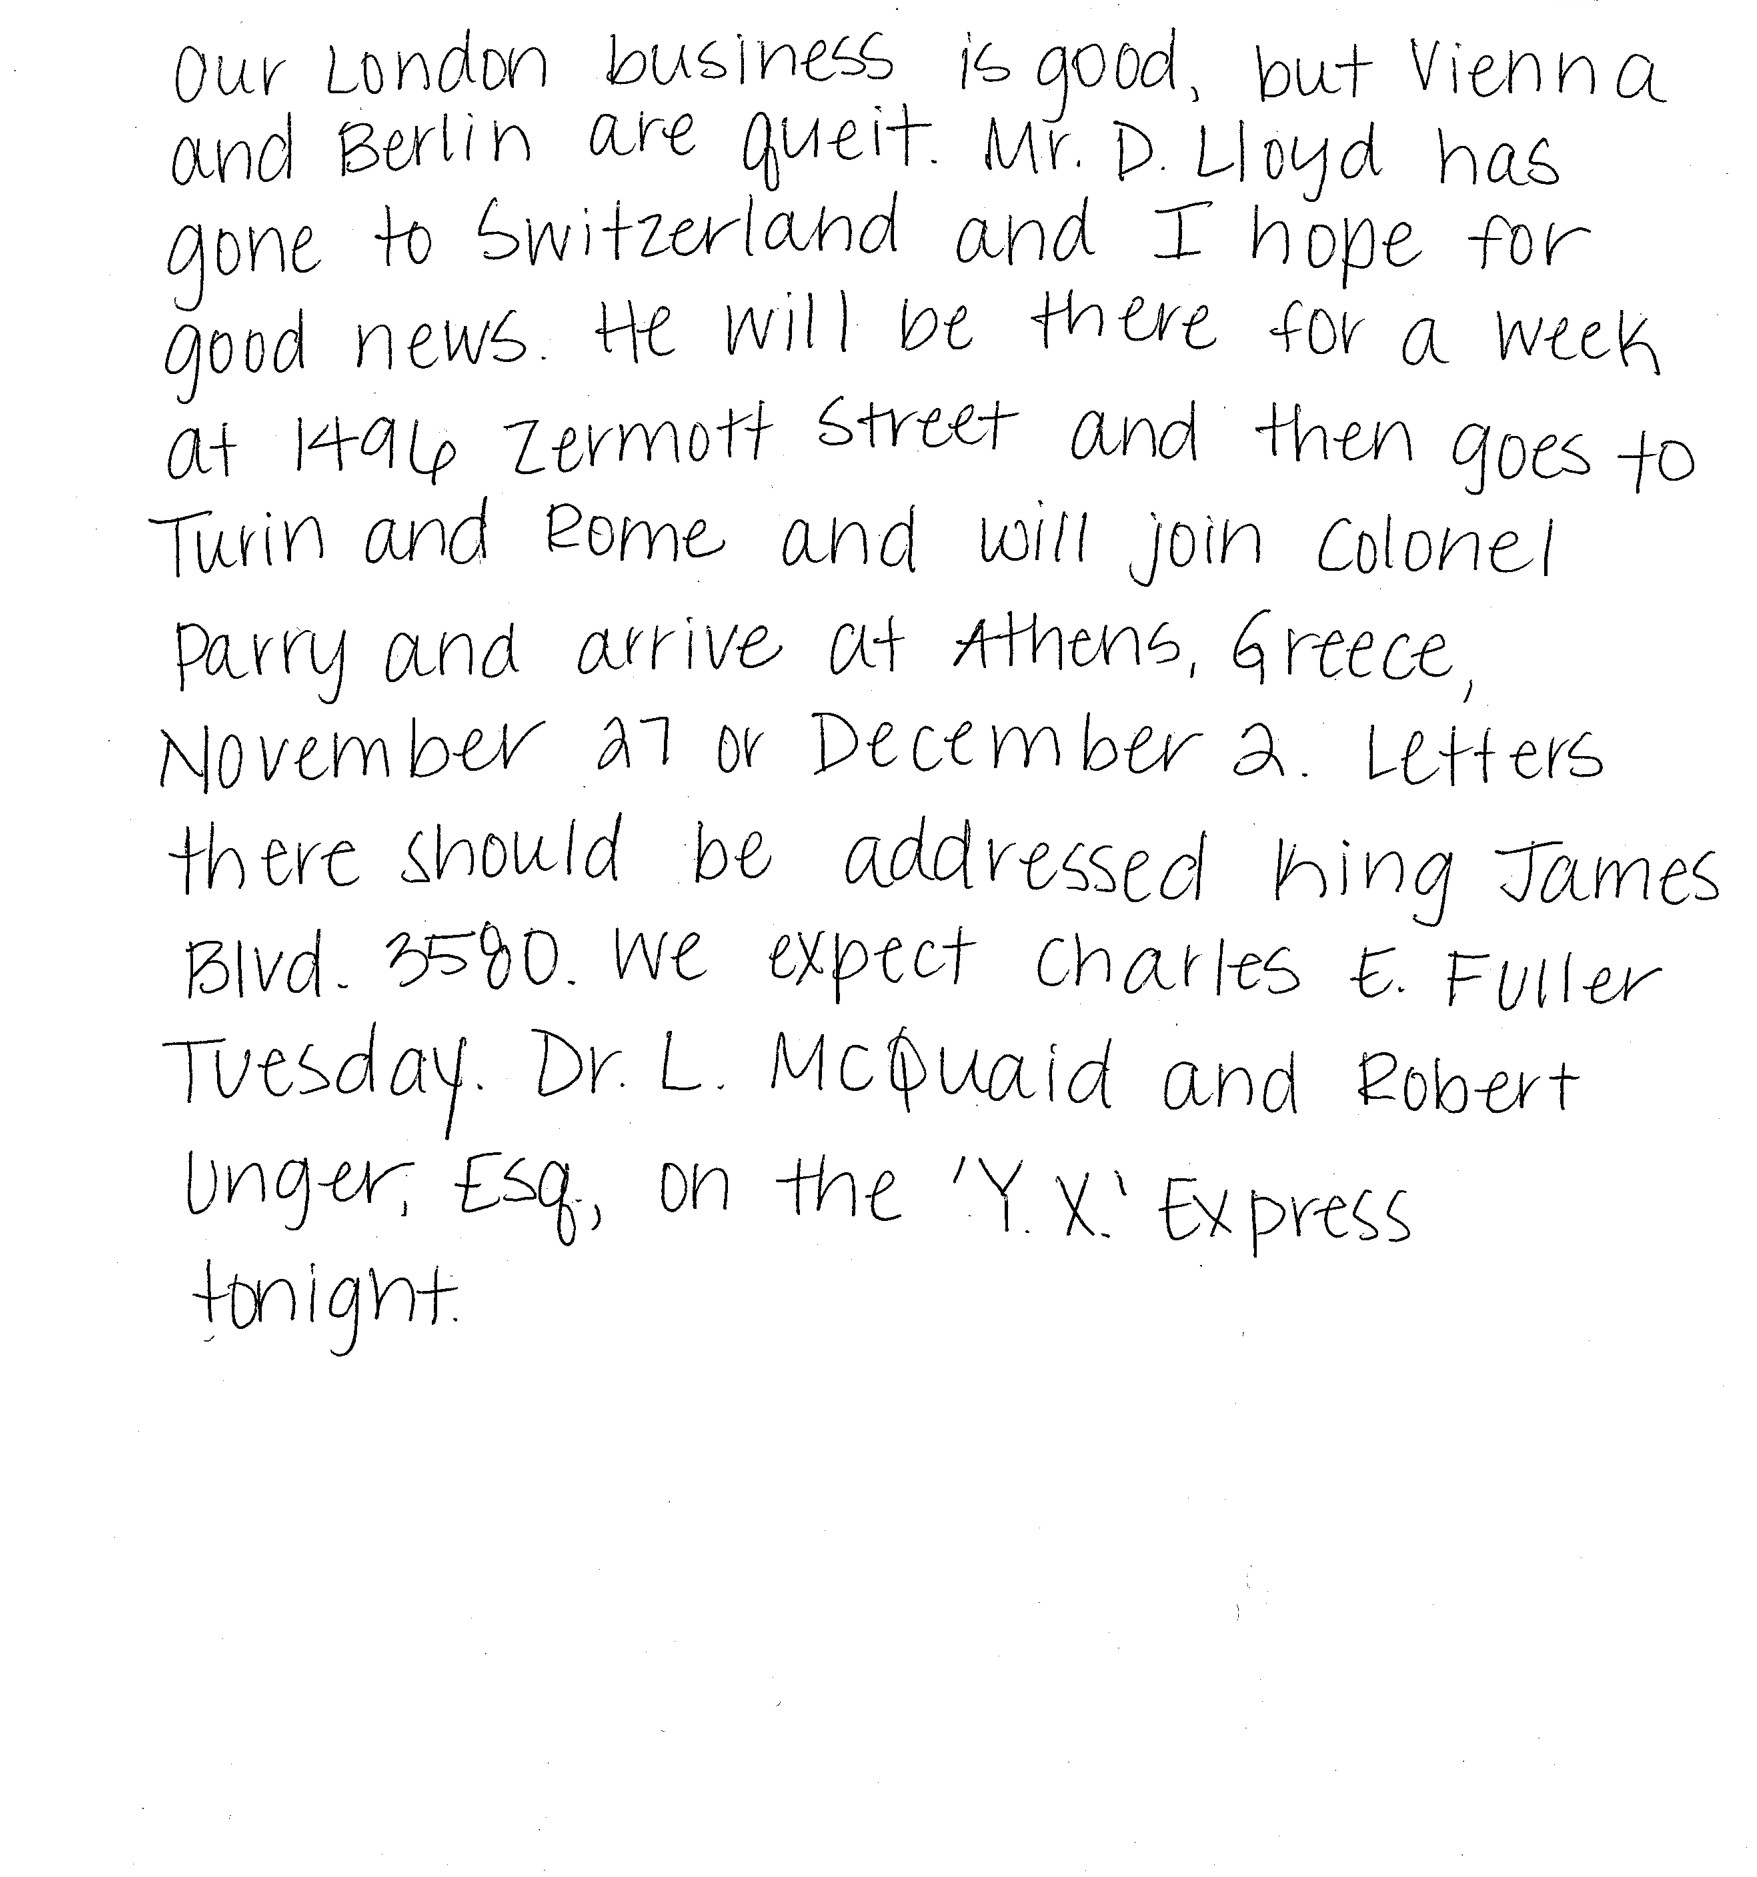 Our London business is good, but Vienna
and Berlin are queit. Mr. D. Lloyd has
gone to Switzerland and I hope for
good news. He will be there for a week
at 1496 Zermott Street and then goes to
Turin and Rome and will join Colonel
Parry and arrive at Athens, Greece,
November 27 or December 2. Letters
there should be addressed King James
Blvd. 3580. We expect Charles E. Fuller
Tuesday. Dr. L. McQuaid and Robert
Unger, Esq., on the 'Y.X.' Express
tonight.